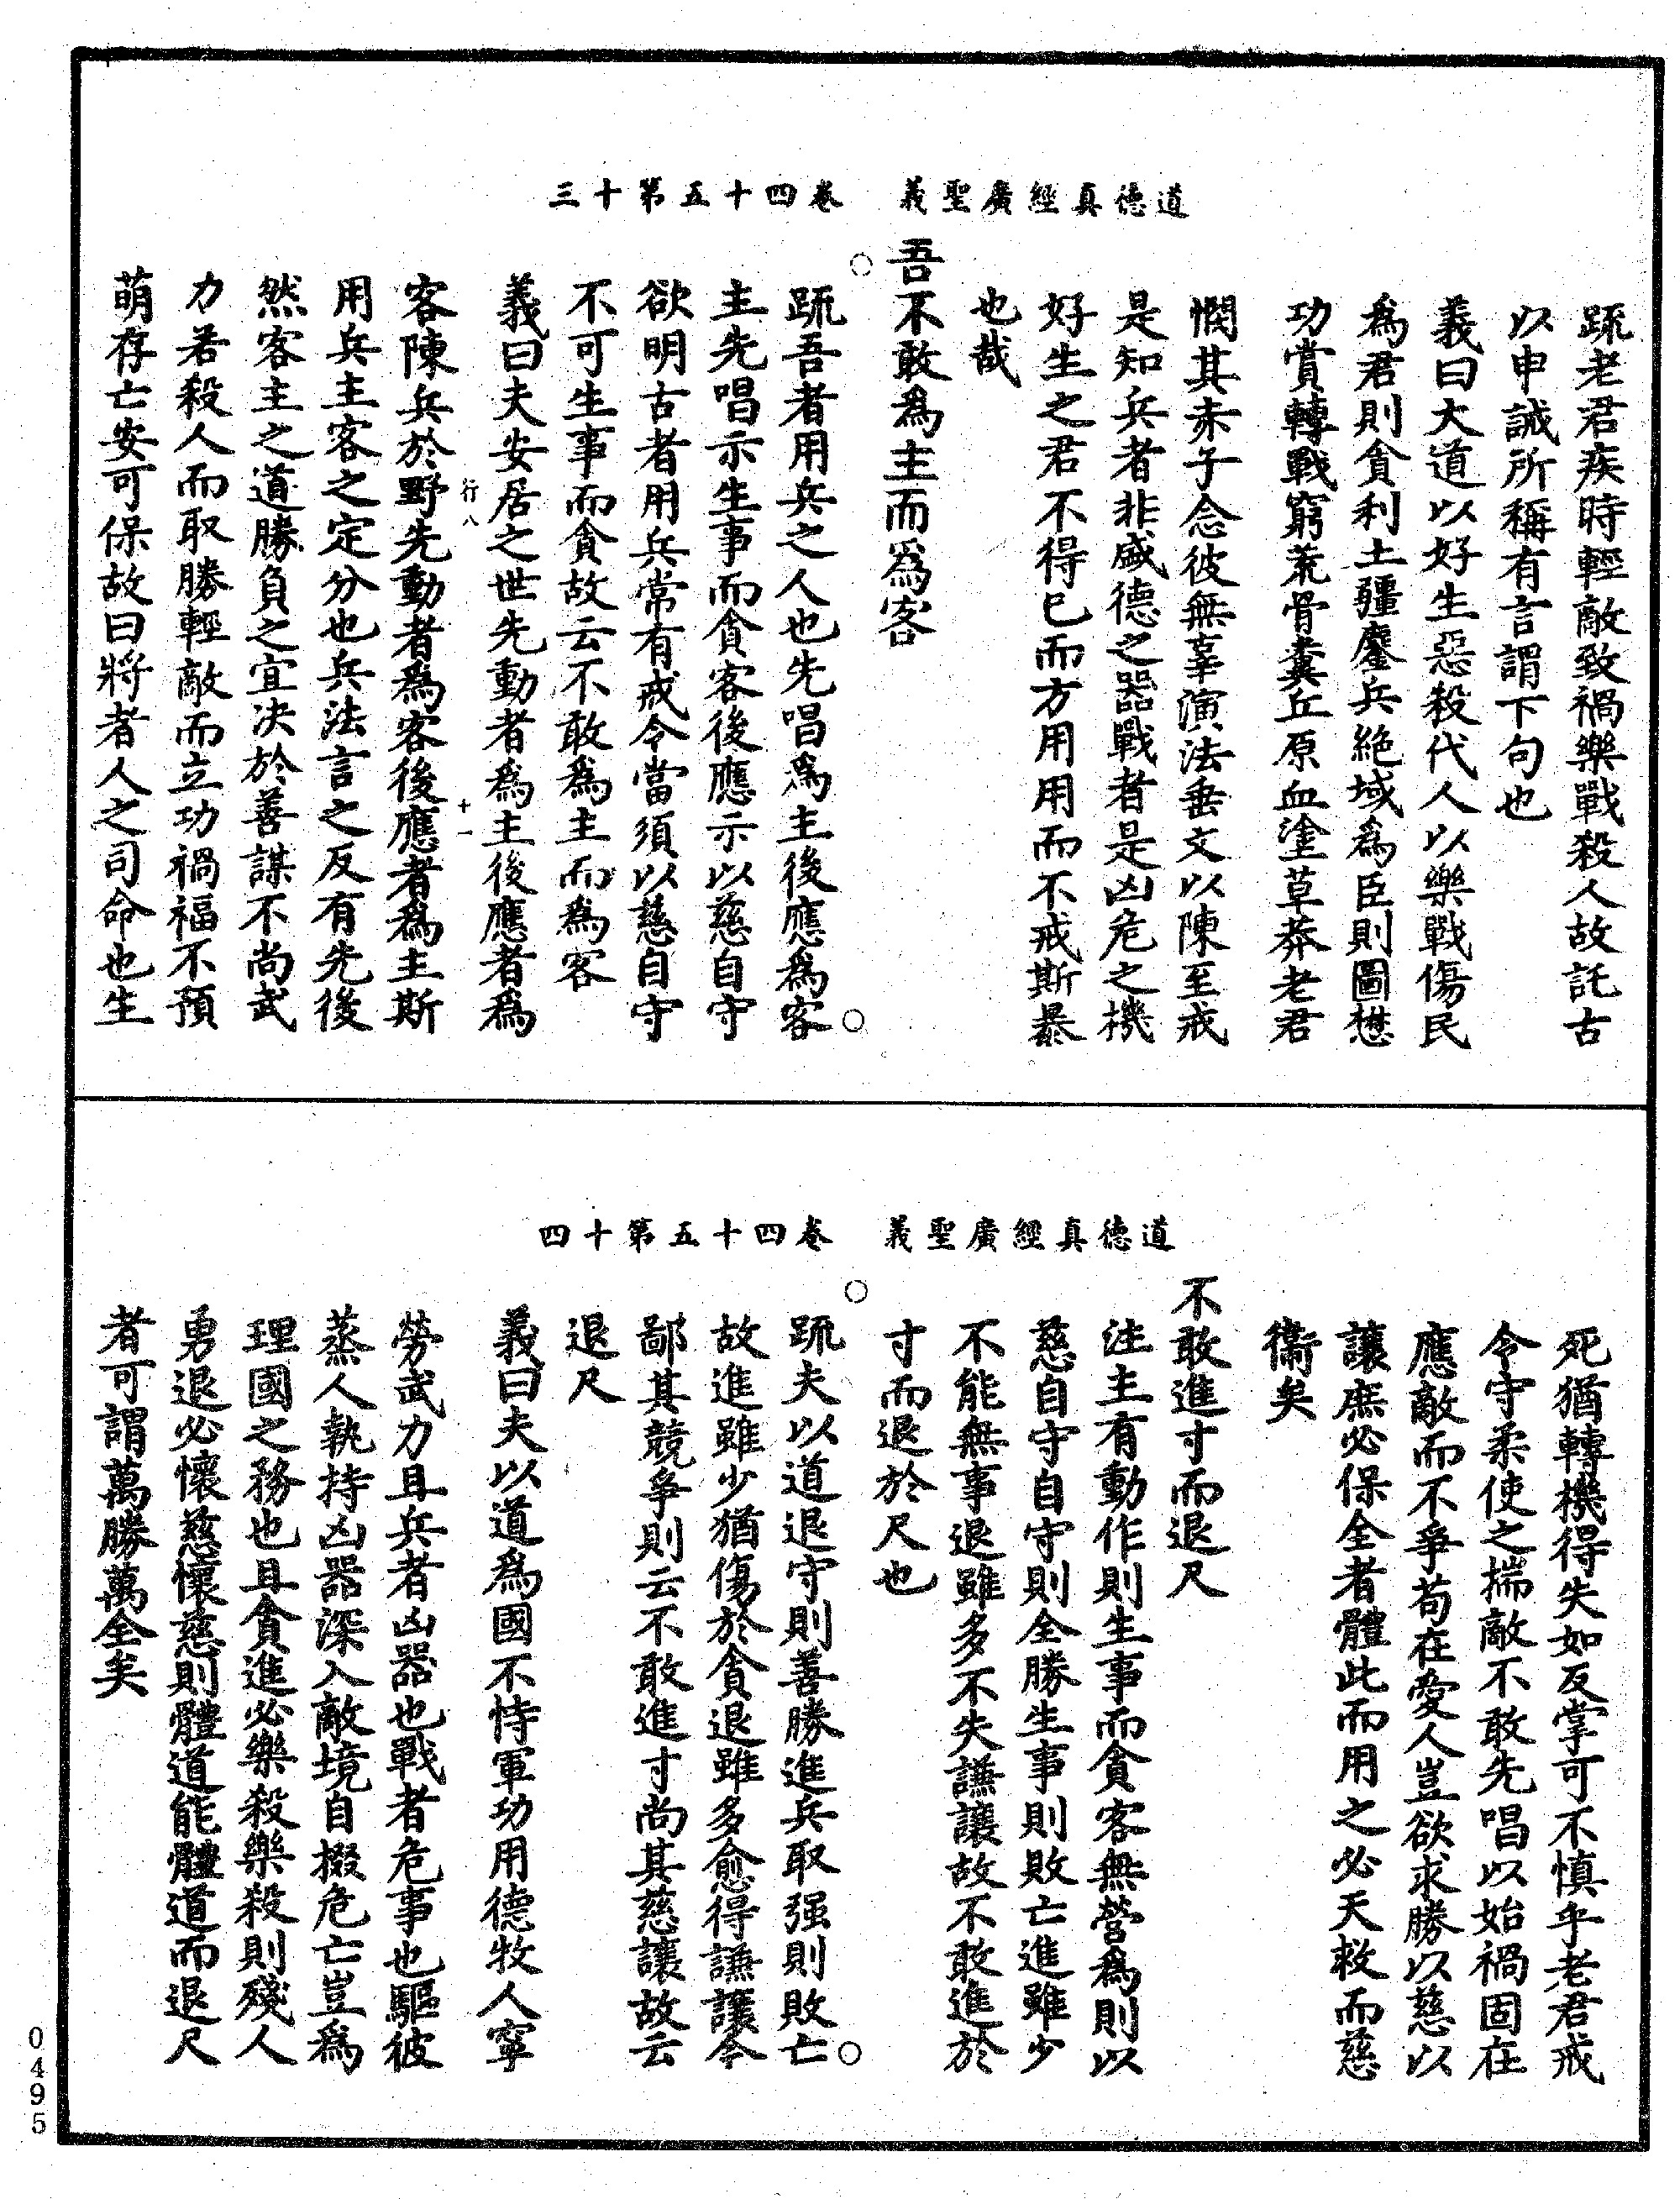 道德真經廣聖義　卷四十五第十三
疏老君疾時輕敵致禍樂戰殺人故託古
以申誡所稱有言謂下句也
義曰大道以好生惡殺代人以樂戰傷民
為君則貪利土疆鏖兵絕域為臣則圖楙
功賞轉戰窮荒骨糞丘原血塗草莽老君
憫其赤子念彼無辜演法垂文以陳至戒
是知兵者非盛德之器戰者是凶危之機
好生之君不得已而方用用而不戒斯暴
也哉
吾不敢為主而為客
疏吾者用兵之人也先唱為主後應為客
主先唱示生事而貪客後應示以慈自守
欲明古者用兵常有戒令當須以慈自守
不可生事而貪故云不敢為主而為客
義曰夫安居之世先動者為主後應者為
行八　十一
客陳兵於野先動者為客後應者為主斯
用兵主客之定分也兵法言之反有先後
然客主之道勝負之宜決於善謀不尚武
力若殺人而取勝輕敵而立功禍福不預
萌存亡安可保故曰將者人之司命也生
道德真經廣聖義　卷四十五第十四
死猶轉機得失如反掌可不慎乎老君戒
令守柔使之揣敵不敢先唱以始禍固在
應敵而不爭苟在愛人豈欲求勝以慈以
讓庶必保全者體此而用之必天救而慈
衞矣
不敢進寸而退尺
注主有動作則生事而貪客無營為則以
慈自守自守則全勝生事則敗亡進雖少
不能無事退雖多不失謙讓故不敢進於
寸而退於尺也
疏夫以道退守則善勝進兵取强則敗亡
故進雖少猶傷於貪退雖多愈得謙讓今
鄙其競爭則云不敢進寸尚其慈讓故云
退尺
義曰夫以道為國不恃軍功用德牧人寧
勞武力且兵者凶器也戰者危事也驅彼
蒸人執持凶器深入敵境自掇危亡豈為
理國之務也且貪進必樂殺樂殺則殘人
勇退必懷慈懷慈則體道能體道而退尺
者可謂萬勝萬全矣
0495